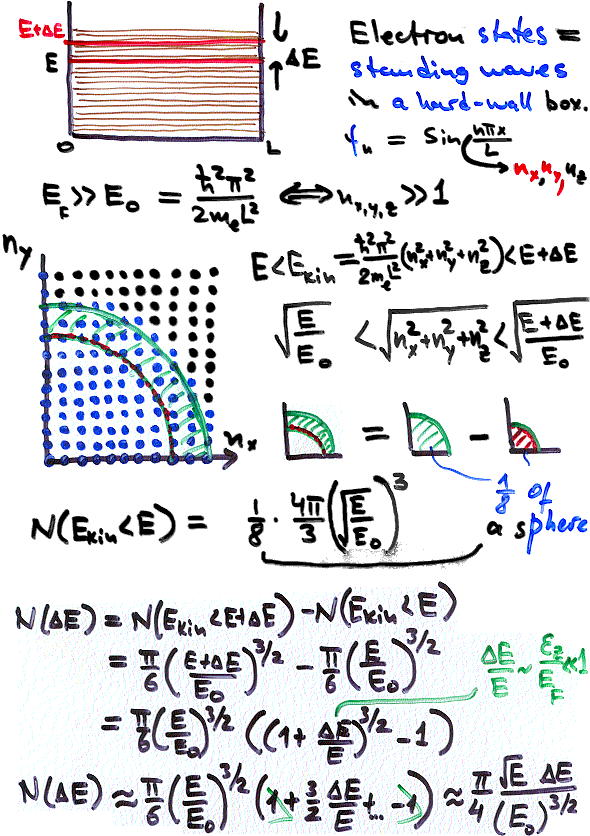 E+ΔE
E
ΔE
O
L
Electron states =
standing waves
in a hard-wall box.
fₙ = Sin nπx/L
→ nₓ, nᵧ, n_z
E_F >> E₀ = ħ²π²/2mₑL² ⟺ n_x,y,z >> 1
n_y
n_x
E < E_kin = ħ²π²/2mₑL² (nₓ²+n_y²+n_z²) < E+ΔE
√(E/E₀) < √(nₓ²+n_y²+n_z²) < √((E+ΔE)/E₀)
= -
1/8 of
a sphere
N(E_kin<E) = 1/8 · 4π/3 (√(E/E₀))³
N(ΔE) = N(E_kin<E+ΔE) - N(E_kin<E)
= π/6 ((E+ΔE)/E₀)^3/2 - π/6 (E/E₀)^3/2
ΔE/E ~ ε_z/E_F <<1
= π/6 (E/E₀)^3/2 ((1+ ΔE/E)^3/2 - 1)
N(ΔE) ≈ π/6 (E/E₀)^3/2 (1 + 3/2 ΔE/E +... -1) ≈ π/4 √E ΔE/(E₀)^3/2